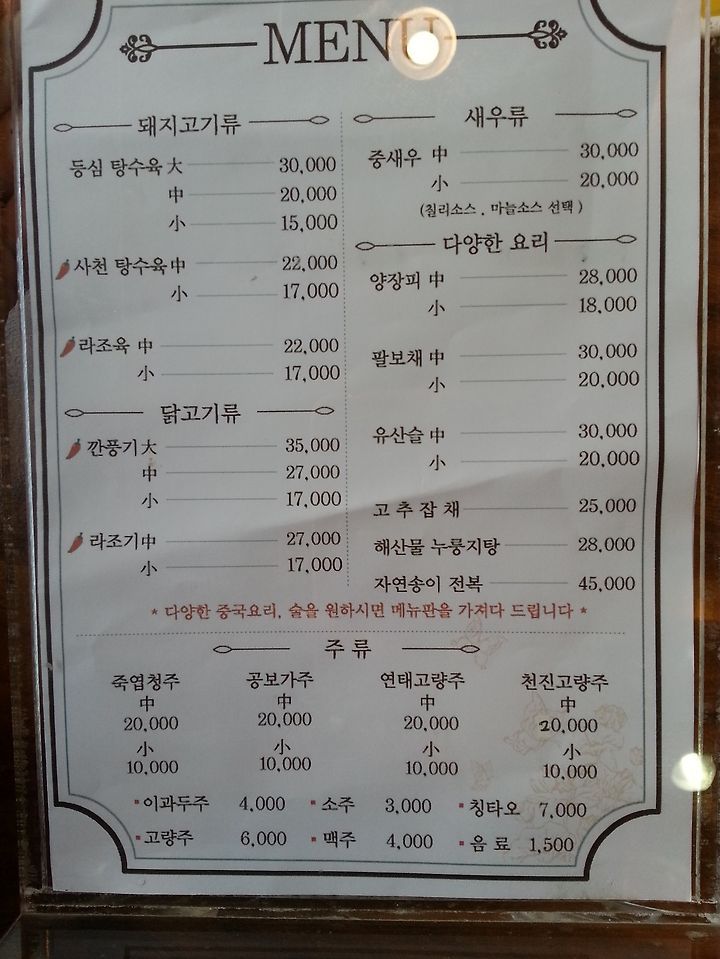 MENU
돼지고기류
등심 탕수육 大 30,000
中 20,000
小 15,000
사천 탕수육 中 22,000
小 17,000
라조육 中 22,000
小 17,000
닭고기류
깐풍기 大 35,000
中 27,000
小 17,000
라조기 中 27,000
小 17,000
새우류
중새우 中 30,000
小 20,000
(칠리소스 . 마늘소스 선택)
다양한 요리
양장피 中 28,000
小 18,000
팔보채 中 30,000
小 20,000
유산슬 中 30,000
小 20,000
고 추 잡 채 25,000
해산물 누룽지탕 28,000
자연송이 전복 45,000
* 다양한 중국요리, 술을 원하시면 메뉴판을 가져다 드립니다 *
주 류
죽엽청주 공보가주 연태고량주 천진고량주
中 中 中 中
20,000 20,000 20,000 20,000
小 小 小 小
10,000 10,000 10,000 10,000
이과두주 4,000 소주 3,000 칭타오 7,000
고량주 6,000 맥주 4,000 음 료 1,500